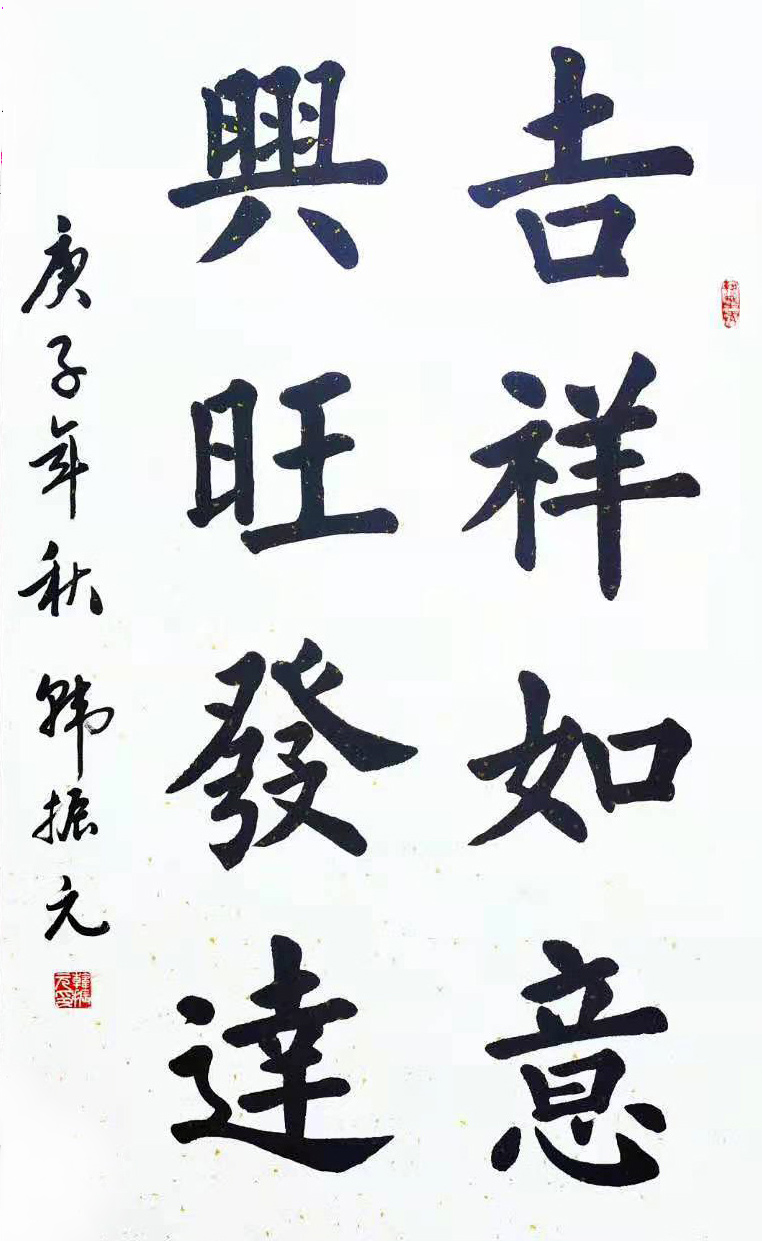 吉祥如意
興旺發達
庚子年秋 韩振元
韓振元印